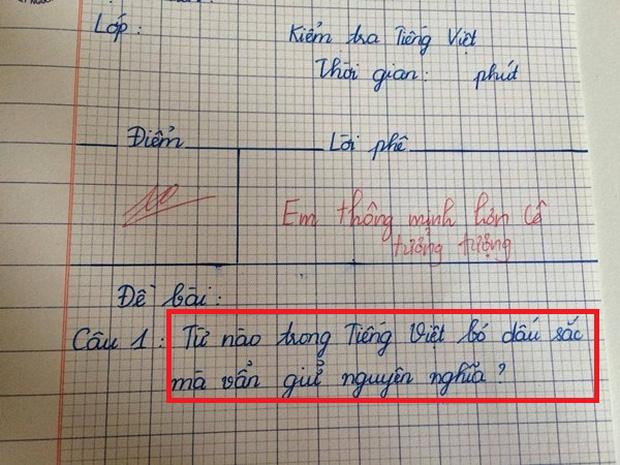 Lớp:
Kiểm tra Tiếng Việt
Thời gian: phút
Điểm
Lời phê
10
Em thông minh hơn Cô
tưởng tượng
Đề bài:
Câu 1: Từ nào trong Tiếng Việt bỏ dấu sắc
mà vẫn giữ nguyên nghĩa?